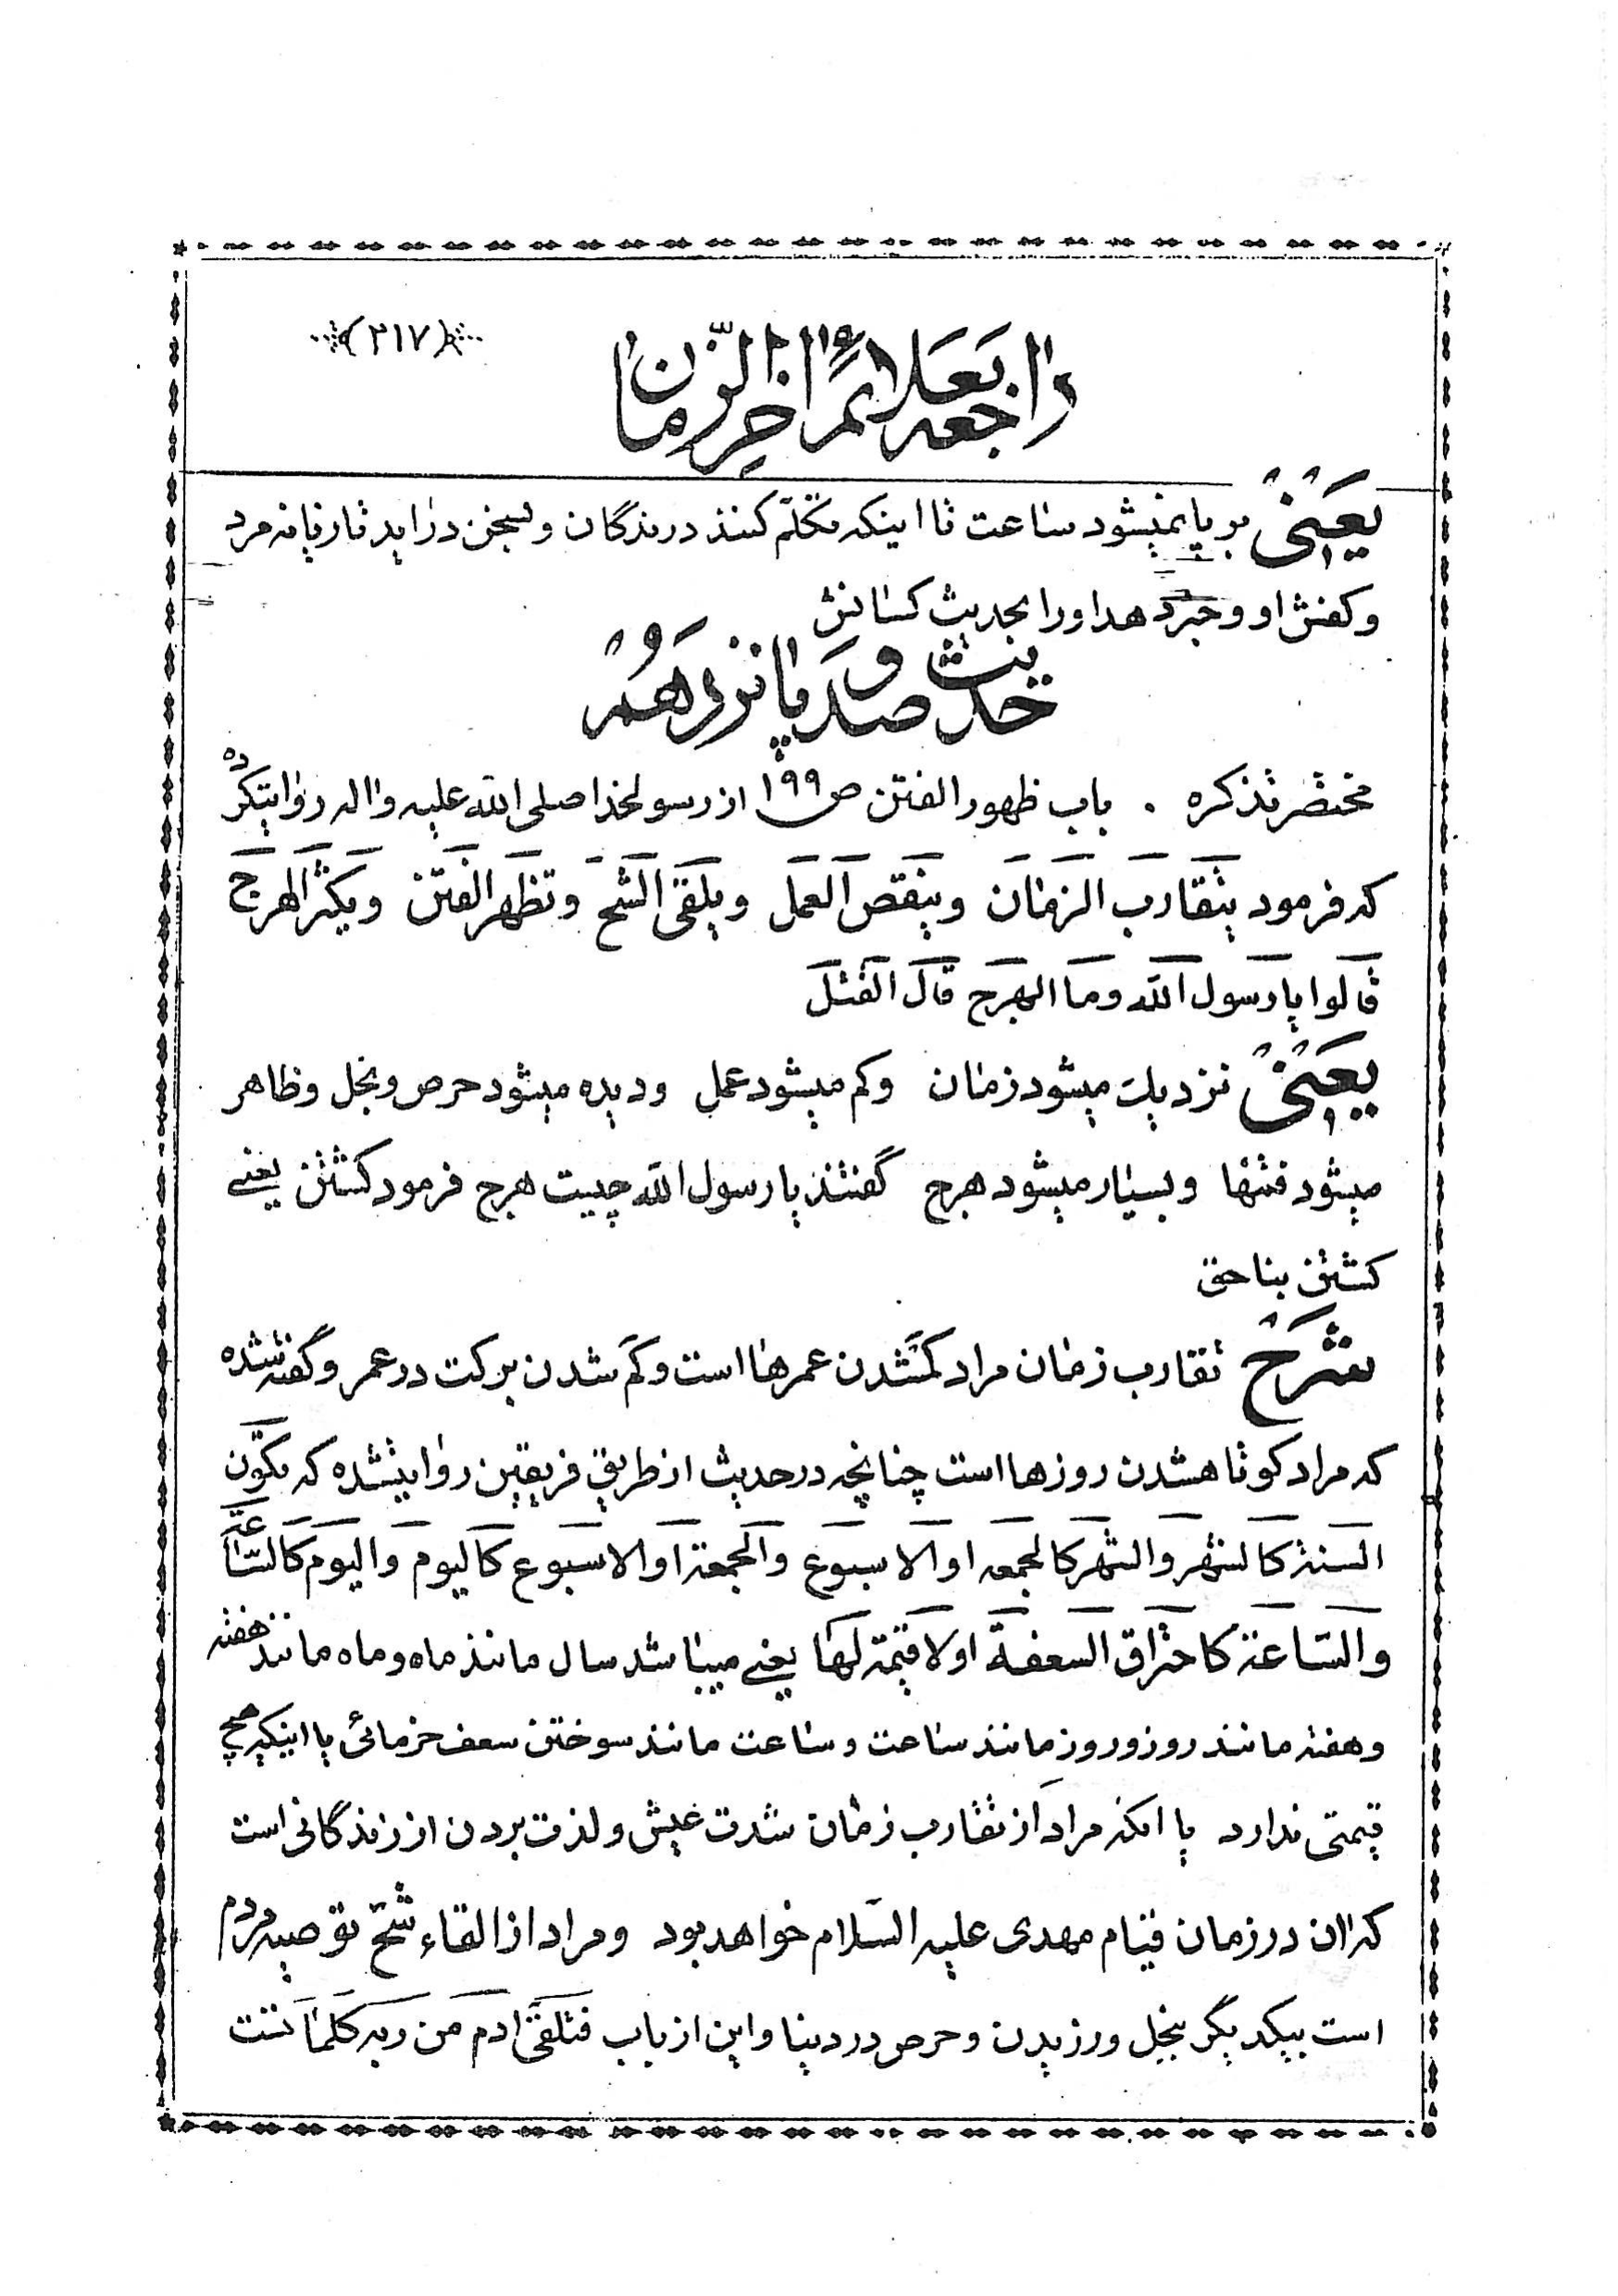 (۲۱۷)
راجعه بعلائم اخر الزمان
یعنی بر پا نمیشود ساعت تا اینکه تکلم کنند درندگان و بسخن دراید تازیانه مرد
و کفش او و خبر دهد او را بحدیث کسانش
حدیث صد و پانزدهم
مختصر تذکره . باب ظهور الفتن ص ۱۹۹ از رسولخدا صلی الله علیه واله روایتکرده
که فرمود یتقارب الزمان وینقص العمل ویلقی الشح وتظهر الفتن ویکثر الهرج
قالوا یا رسول الله وما الهرج قال القتل
یعنی نزدیک میشود زمان وکم میشود عمل ودیده میشود حرص وبخل وظاهر
میشود فتنها وبسیار میشود هرج گفتند یا رسول الله چیست هرج فرمود کشتن یعنے
کشتن بناحق
شرح تقارب زمان مراد کمشدن عمرها است وکم شدن برکت در عمر وگفته شده
که مراد کوتاهشدن روزها است چنانچه در حدیث از طریق فریقین روایتشده که تکون
السنة کالشهر والشهر کالجمعه او الاسبوع والجمعة او الاسبوع کالیوم والیوم کالساعة
والساعة کاحتراق السعفة اولا قیمة لها یعنے میباشد سال مانند ماه وماه مانند هفته
وهفته مانند روز وروز مانند ساعت وساعت مانند سوختن سعف خرمائی یا اینکه هیچ
قیمتی ندارد یا انکه مراد از تقارب زمان شدت عیش ولذت بردن از زندگانی است
که ان در زمان قیام مهدی علیه السلام خواهد بود ومراد از القاء شح توصیه مردم
است بیکدیگر ببخل ورزیدن وحرص در دینا واین از باب فتلقی ادم من ربه کلمات است